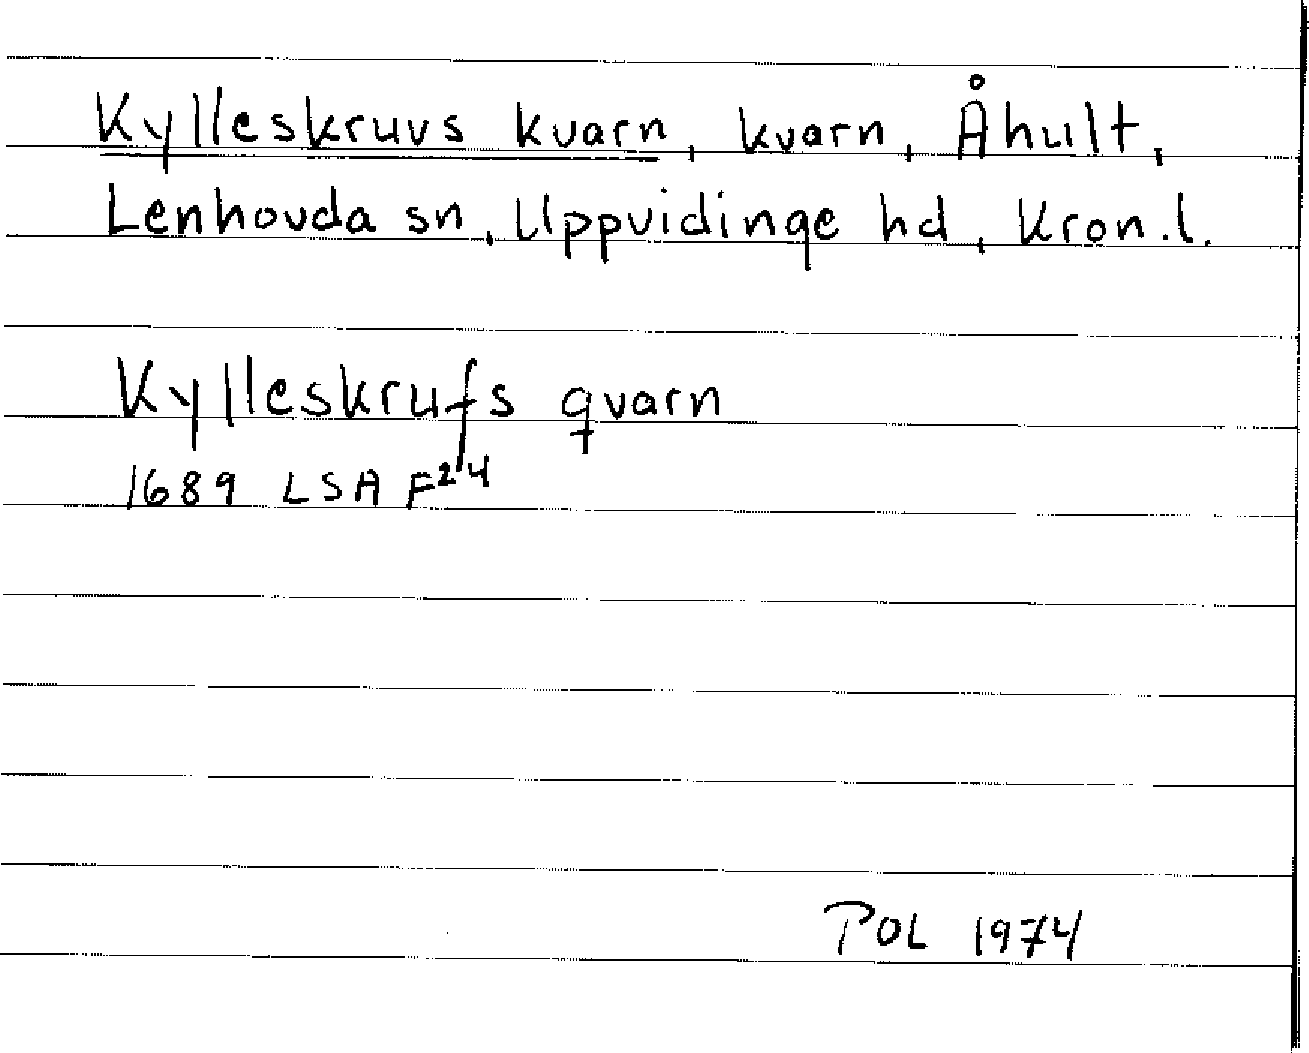 Kylleskruvs kvarn, kvarn, Åhult,
Lenhovda sn, Uppvidinge hd, Kron.l.
Kylleskrufs qvarn
1689 LSA F²4
POL 1974